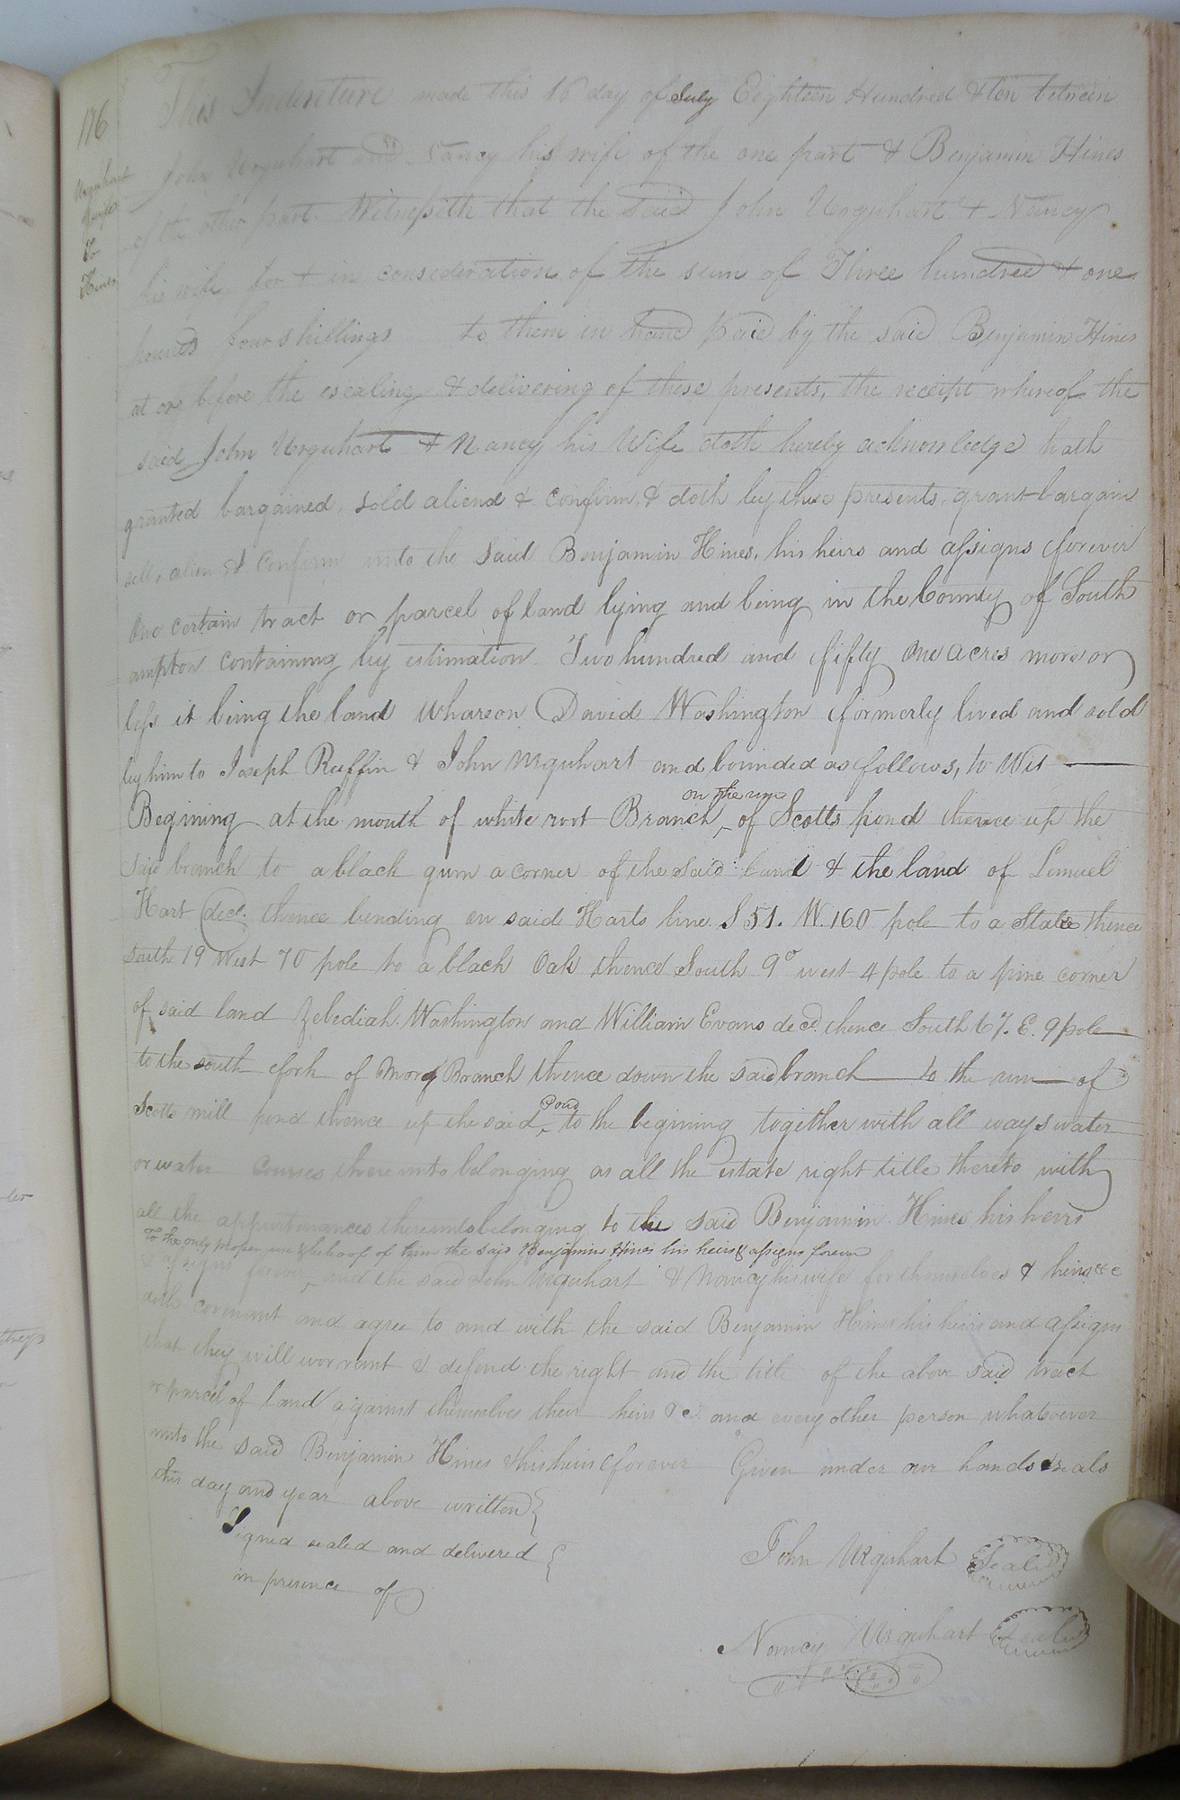 176
Urquhart
& wife
To
Hines
This Indenture made this 16 day of July Eighteen Hundred & ten between
John Urquhart and Nancy his wife of the one part & Benjamin Hines
of the other part. Witnesseth that the said John Urquhart & Nancy
his wife for & in consideration of the sum of Three hundred & one
pounds four shillings to them in hand paid by the said Benjamin Hines
at or before the ensealing & delivering of these presents, the receipt whereof the
said John Urquhart & Nancy his Wife doth hereby acknowledge hath
granted bargained, sold aliend & confirm, & doth by these presents, grant bargain
sell, alien & confirm unto the said Benjamin Hines, his heirs and assigns forever
One certain tract or parcel of land lying and being in the County of South
ampton containing by estimation Two hundred and fifty One acres more or
less it being the land whareon David Washington formerly lived and sold
by him to Joseph Ruffin & John Urquhart and bounded as follows, to Wit
on the run
Begining at the mouth of white root Branch of Scotts pond thence up the
said branch to a black gum a corner of the said land & the land of Lemuel
Hart decd. thence bending on said Harts line S 51. W. 160 pole to a Stake thence
south 19 West 70 pole to a black Oak thence South 9° west 4 pole to a pine corner
of said land Zebediah Washington and William Evans decd. thence South 67. E. 9 pole
to the south fork of Branch thence down the said branch to the run of
Pond
Scotts mill pond thence up the said to the begining together with all ways water
or water Courses thereunto belonging as all the estate right title thereto with
all the appurtenances thereunto belonging to the said Benjamin Hines his heirs
To the only proper use & behoof of him the said Benjamin Hines his heirs & assigns forever
& assigns forever and the said John Urquhart & Nancy his wife for themselves & heirs &c
doth covenant and agree to and with the said Benjamin Hines his heirs and assigns
that they will worrant & defend the right and the title of the above said tract
or parcel of land against themselves their heirs &c. and every other person whatsoever
unto the said Benjamin Hines & his heirs forever Given under our hands & seals
this day and year above written
Signed sealed and delivered
in presence of
John Urquhart Seal
Nancy Urquhart Seal